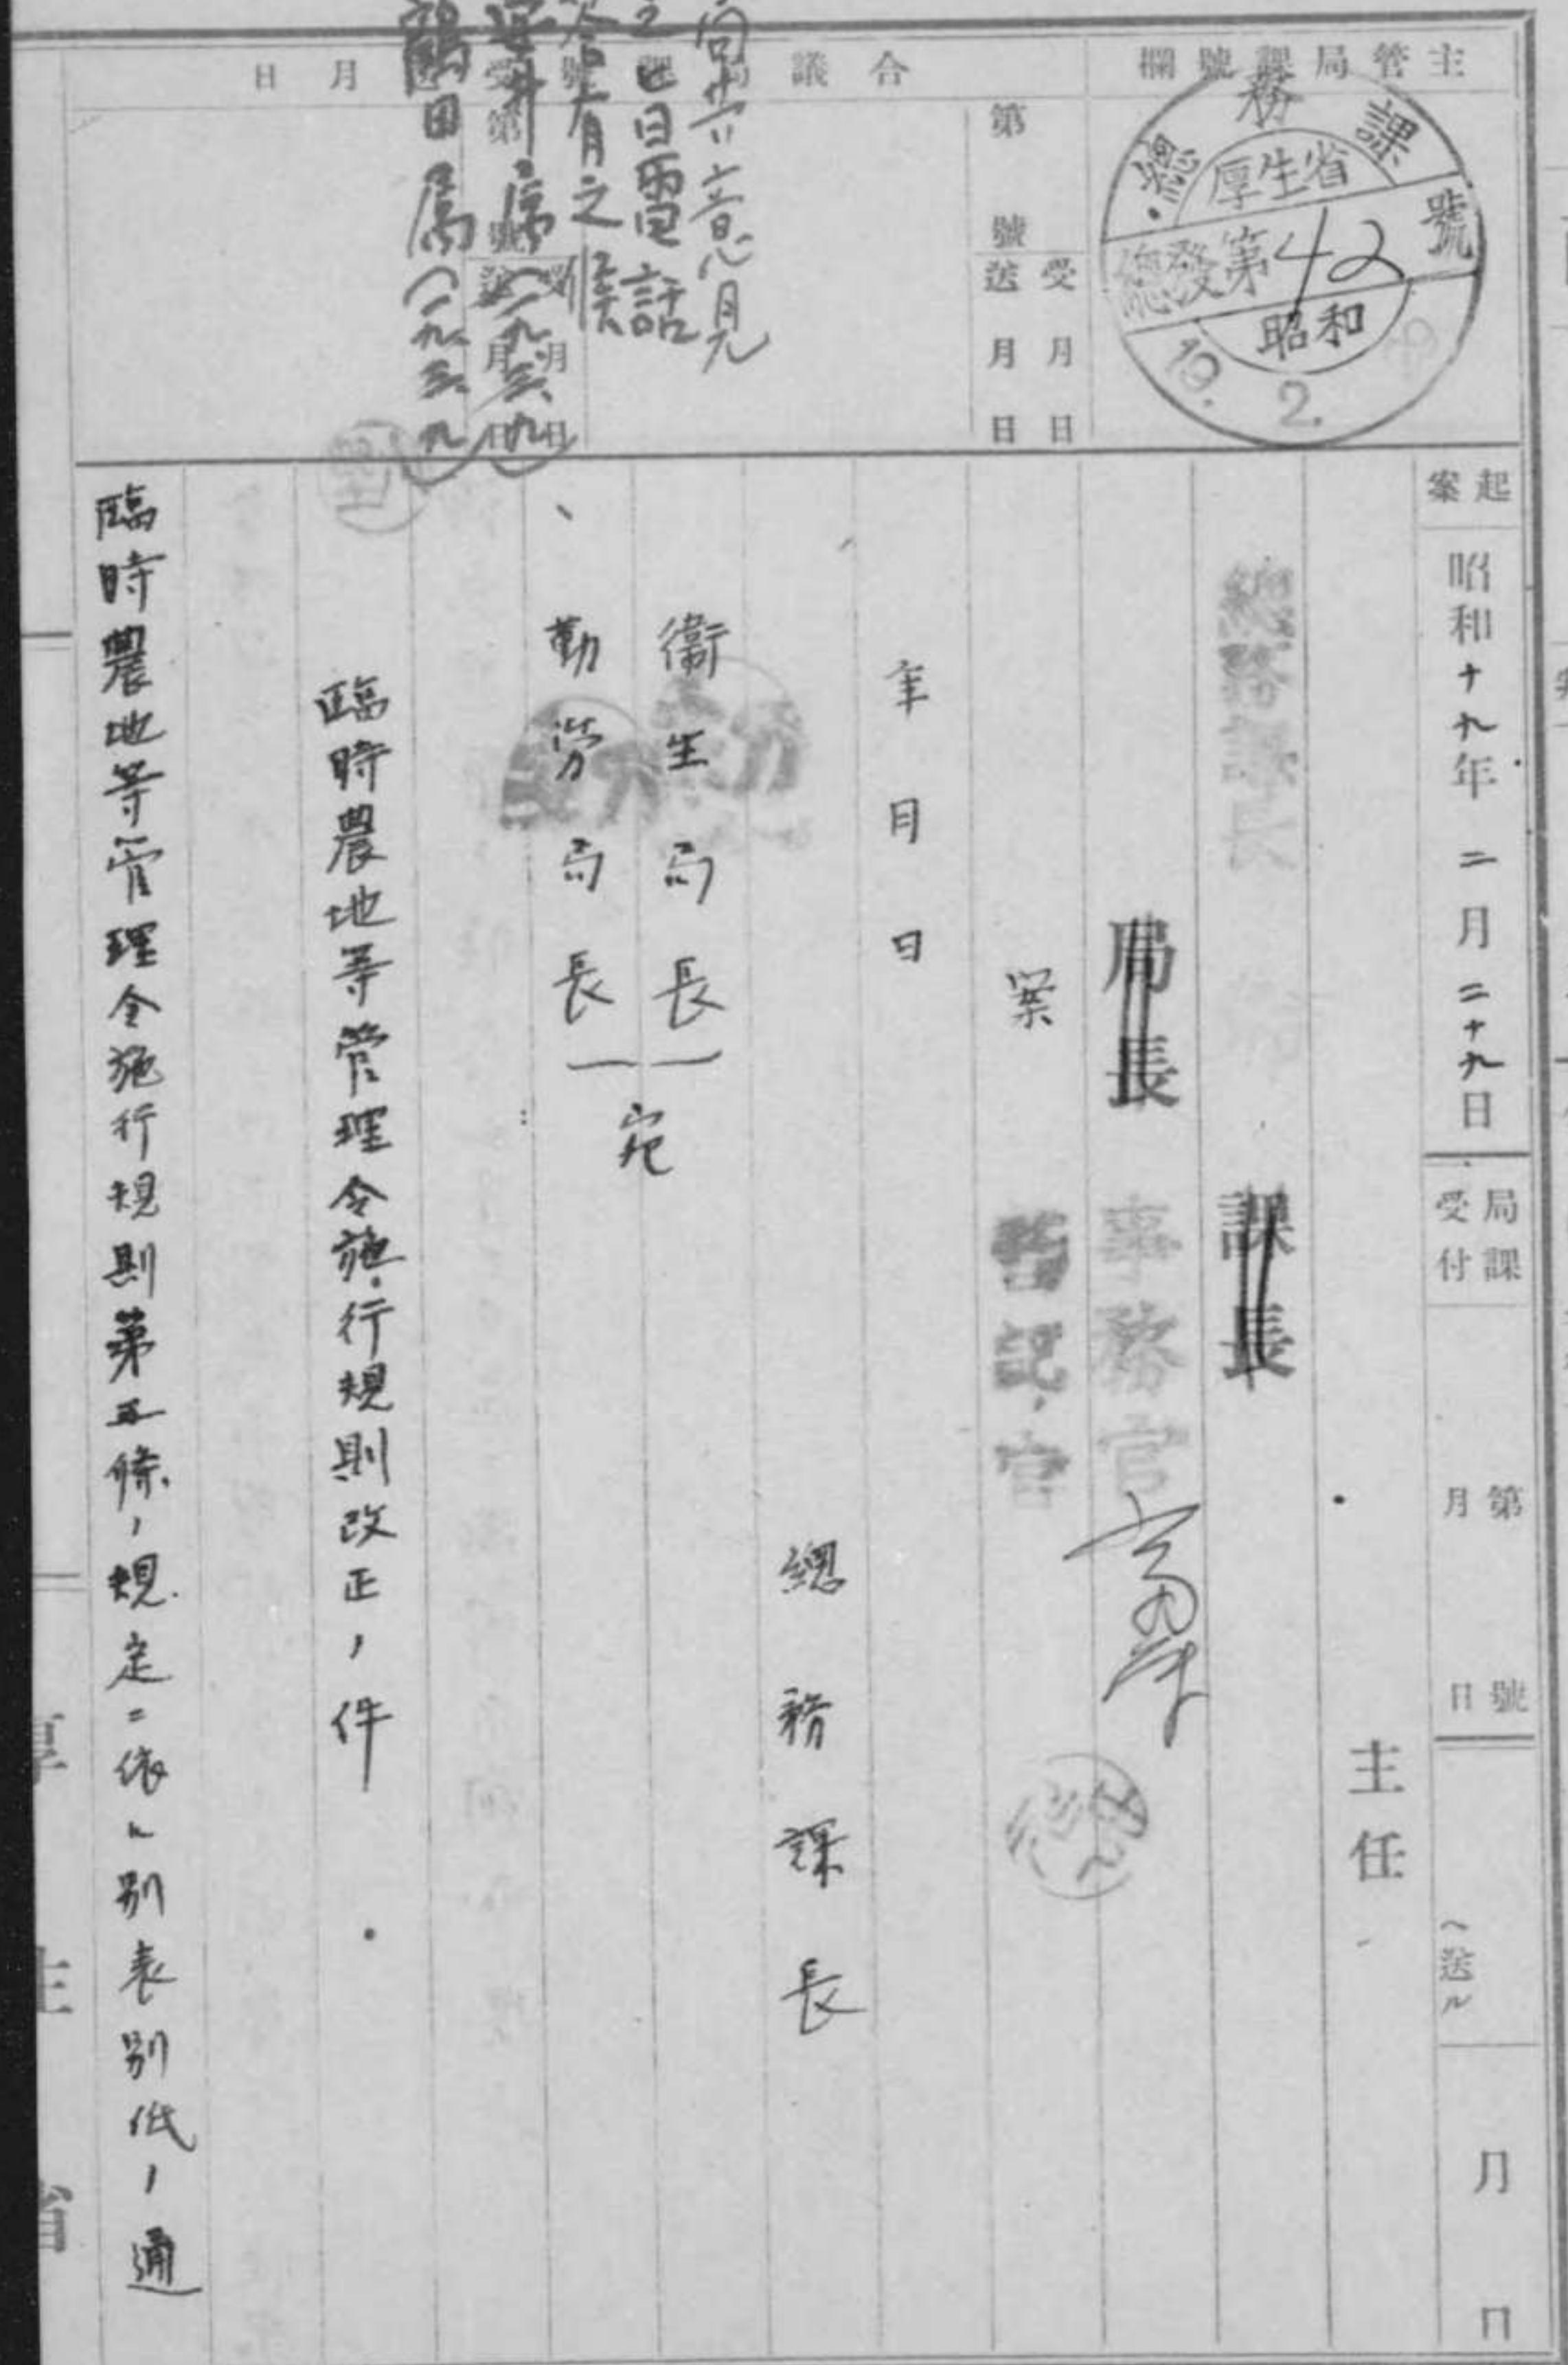 主管局課號欄
總務課
厚生省
總發第42號
昭和
19. 2.
合議
第 號
受 月 日
送 月 日
月 日
之 電話
有之候
鶴田属(一九、三、九)
起案
昭和十九年二月二十九日
局課受付
第 號
月 日
(送ル
月 日
主任
總務課長
課長
局長
事務官
書記官
案
年 月 日
總務課長
衞生局長
勤労局長
宛
臨時農地等管理令施行規則改正ノ件
臨時農地等管理令施行規則第五條ノ規定ニ依ル別表別低ノ通
厚生省